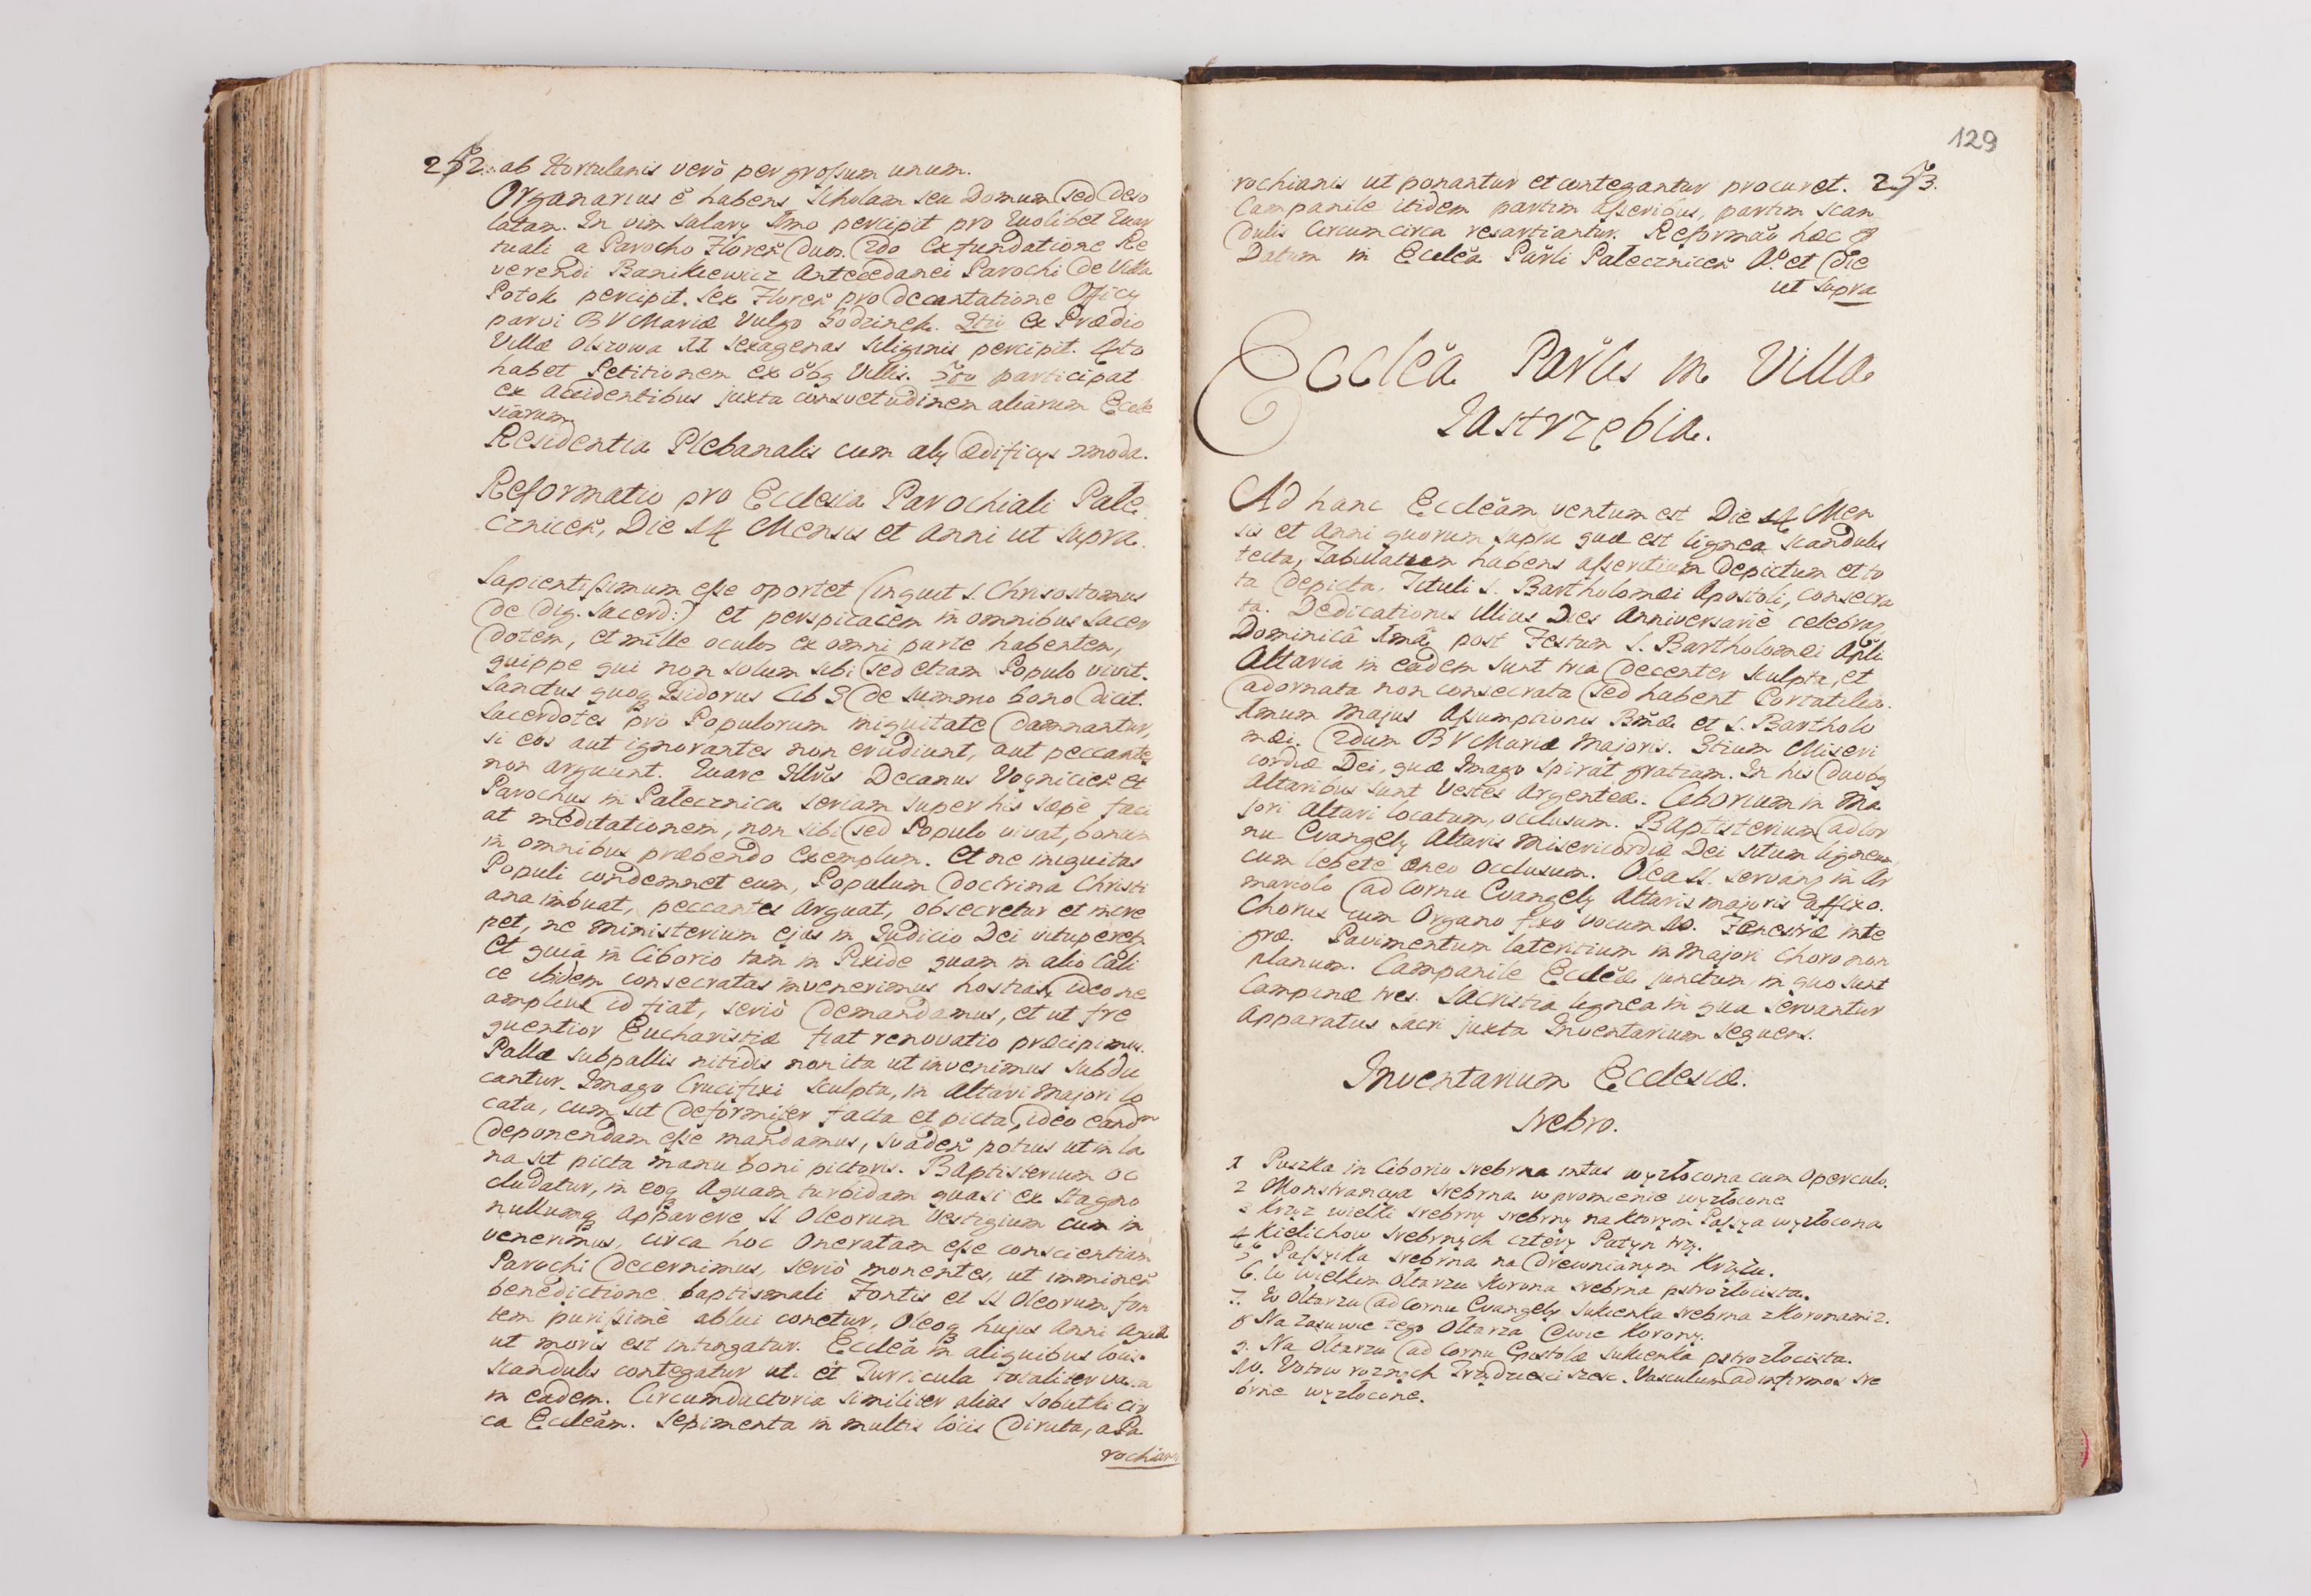 252. ab Hortulanis verò per grossum unum.
Organarius ē habens Scholam seu Domum sed deso
latam. In vim Salary 1mo percipit pro quolibet quar
tuali a Parocho Floren̄ duos. 2do ex fundatione Re
verendi Banikiewicz Antecedanei Parochi de Villa
Potok percipit. Sex Floren̄ pro decantatione Officy
parvi B V Mariæ vulgo Godzinek. 3tio ex Prædio
Villæ Obrzowa II sexagenas siliginis percipit. 4to
habet Petitionem ex õbq Villis. 5to participat
ex accidentibus juxta consvetudinem aliarum Eccle
siarum
Residentia Plebanalis cum alijs ædificijs commoda.
Reformatio pro Ecclesia Parochiali Pale
cznicen̄, Die 14 Mensis et Anni ut supra.
Sapientissimum esse oportet (inquit S. Chrisostomus
de dig. Sacerd:) et perspicacem in omnibus Sacer
dotem, et mille oculos ex omni parte habentem,
quippe qui non solum sibi sed etiam Populo vivit.
Sanctus quoq Isidorus lib 3 de summo bono dicit.
Sacerdotes pro Populorum iniquitate damnantur,
si eos aut ignorantes non erudiunt, aut peccantes
non arguunt. Quare Illr̃is Decanus Vognicien̄ et
Parochus in Palecznica seriam super his sæpe faci
at meditationem, non sibi sed Populo vivat, bonum
in omnibus præbendo exemplum. Et ne iniquitas
Populi condemnet eum, Populum doctrina Christi
ana imbuat, peccantes arguat, obsecretur et incre
pet, ne Ministerium ejus in Judicio Dei vituperetr.
Et quia in Ciborio tam in Pixide quam in alio Cali
ce ibidem consecratas invenerimus hostias, ideo ne
amplius id fiat, seriò demandamus, et ut fre
quentior Eucharistiæ fiat renovatio præcipimus.
Pallæ subpallis nitidis non ita ut invenimus subdu
cantur. Imago Crucifixi sculpta, in Altari majori lo
cata, cum sit deformiter facta et picta, ideo eandm
deponendam esse mandamus, svaden̄ potius ut in la
na sit picta manu boni pictoris. Baptisterium oc
cludatur, in eoq aquam turbidam quasi ex stagno
nullumq apparere SS Oleorum vestigium cum in
venerimus, circa hoc oneratam esse conscientiam
Parochi decernimus, seriò monentes, ut imminen̄
benedictione baptismali Fontis et SS Oleorum fon
tem purissimè ablui conetur, oleoq hujus anni aqua
ut moris est infungatur. Ecclēa in aliquibus locis
scandulis contegatur uti et Turricula totaliter
in eadem. Circumductoria similiter alias Sobutki cir
ca Ecclēam. Sepimenta in multis locis diruta, a Pa
rochian
129
rochianis ut ponantur et contegantur procuret. 253.
Campanile itidem partim asseribus, partim scan
dulis circumcirca resartiantur. Reformāo hæc ē
Datum in Ecclēa Parl̃i Palecznicen̄ Ao. et die
ut supra
Ecclēa Parl̃is in Villa
Jastrzębia.
Ad hanc Ecclēam ventum est Die 14 Men
sis et Anni quorum supra quæ est lignea scandulis
tecta, Tabulatum habens asseritium depictum et to
ta depicta, Tituli S. Bartholomæi Apostoli, consecra
ta. Dedicationis illius Dies Anniversariè celebratr
Dominicâ 1mâ post Festum S. Bartholomæi Apl̃i
Altaria in eadem sunt tria decenter sculpta, et
adornata non consecrata sed habent Portatilia.
1mum majus Assumptionis Bm̃æ et S. Bartholo
mæi. 2dum B V Mariæ Majoris. 3tium Miseri
cordiæ Dei, quæ Imago spirat gratiam. In his duobq
Altaribus sunt Vestes Argenteæ. Ciborium in Ma
jori Altari locatum, occlusum. Baptisterium ad Cor
nu Evangely Altaris Misericordiæ Dei situm ligneum,
cum lebete æneo occlusum. Olea SS. servantr in Ar
mariolo ad Cornu Evangely Altaris majoris affixo.
Chorus cum Organo fixo vocum 10. Fenestræ inte
græ. Pavimentum lateritium in majori Choro non
planum. Campanile Ecclēæ junctum, in quo sunt
Campanæ tres. Sacristia lignea in qua servantur
Apparatus sacri juxta Inventarium sequens.
Inventarium Ecclesiæ.
Srebro.
1 Puszka in Ciborio srebrna intus wyzłocona cum Operculo.
2 Monstrancya srebrna w promienie wyzłocone
3 Krzyz wielki srebrny srebrny na ktorym Passya wyzłocona
4 Kielichow srebrnych cztery Patyn trzy.
5 Passyika srebrna na drewnianym Krzyżu.
6. W wielkim Ołtarzu Korona srebrna pstrozłocista.
7. W Ołtarzu ad Cornu Evangely Sukienka srebrna z Koronami 2.
8 Na zasuwie tego Ołtarza dwie Korony.
9. Na Ołtarzu ad Cornu Epistolæ sukienka pstrozłocista.
10. Votow roznych Trzydziesci szesc. Vasculum ad infirmos sre
brne wyzłocone.